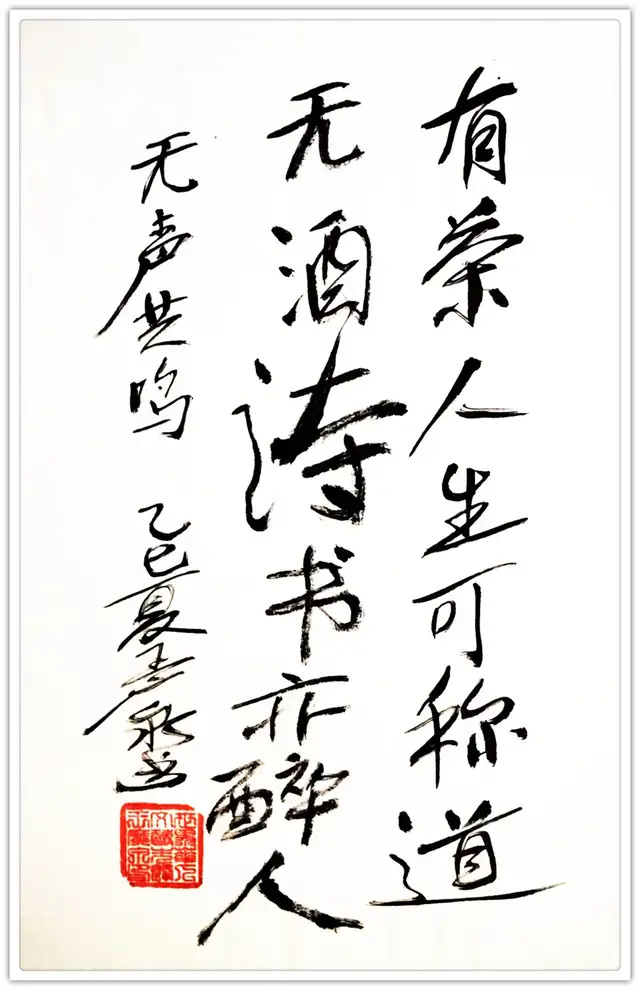 有茶人生可称道
无酒诗书亦醉人
无声共鸣 乙巳夏